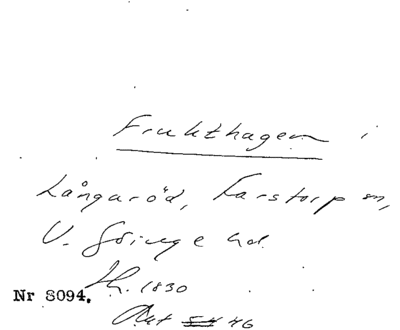 Frukthagen i
Långaröd, Farstorp sn,
V. Göinge hd
Th. 1830
Nr 8094.
Akt 54 46